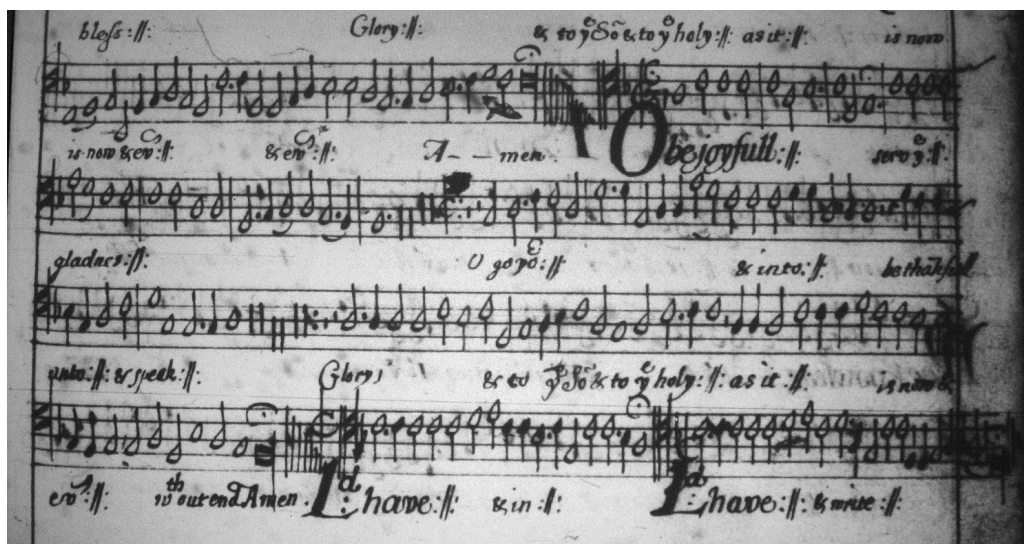 bless :||: Glory :||: & to yͤ Sõ & to yͤ holy :||: as it :||: is now
is now & ev͛ :||: & ev͛ :||: A - - men. O be joyfull :||: serv yͤ :||:
gladnes :||: O go yõ :||: & into :||: be thãkfull
unto :||: & speak :||: Glory, & to yͤ Sõ & to yͤ holy :||: as it :||: is now &
ev͛ :||: wᵗʰ out end Amen. Lᵈ have :||: & in :||: Lᵈ have :||: & write :||: